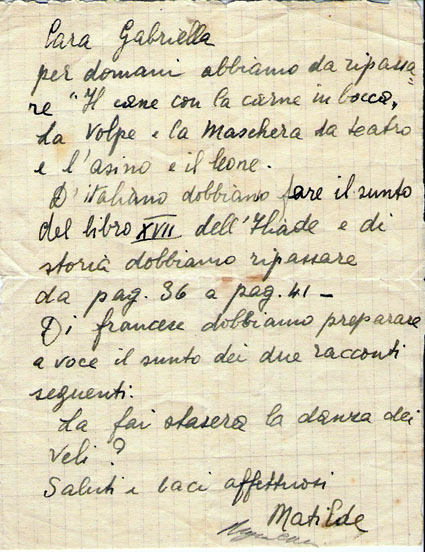 Cara Gabriella
per domani abbiamo da ripassa=
re "Il cane con la carne in bocca,
La Volpe e la Maschera da teatro
e l'asino e il leone.
D'italiano dobbiamo fare il sunto
del libro XVII dell'Iliade e di
storia dobbiamo ripassare
da pag. 36 a pag. 41 -
Di francese dobbiamo preparare
a voce il sunto dei due racconti
seguenti:
La fai stasera la danza dei
veli?
Saluti e baci affettuosi
Matilde